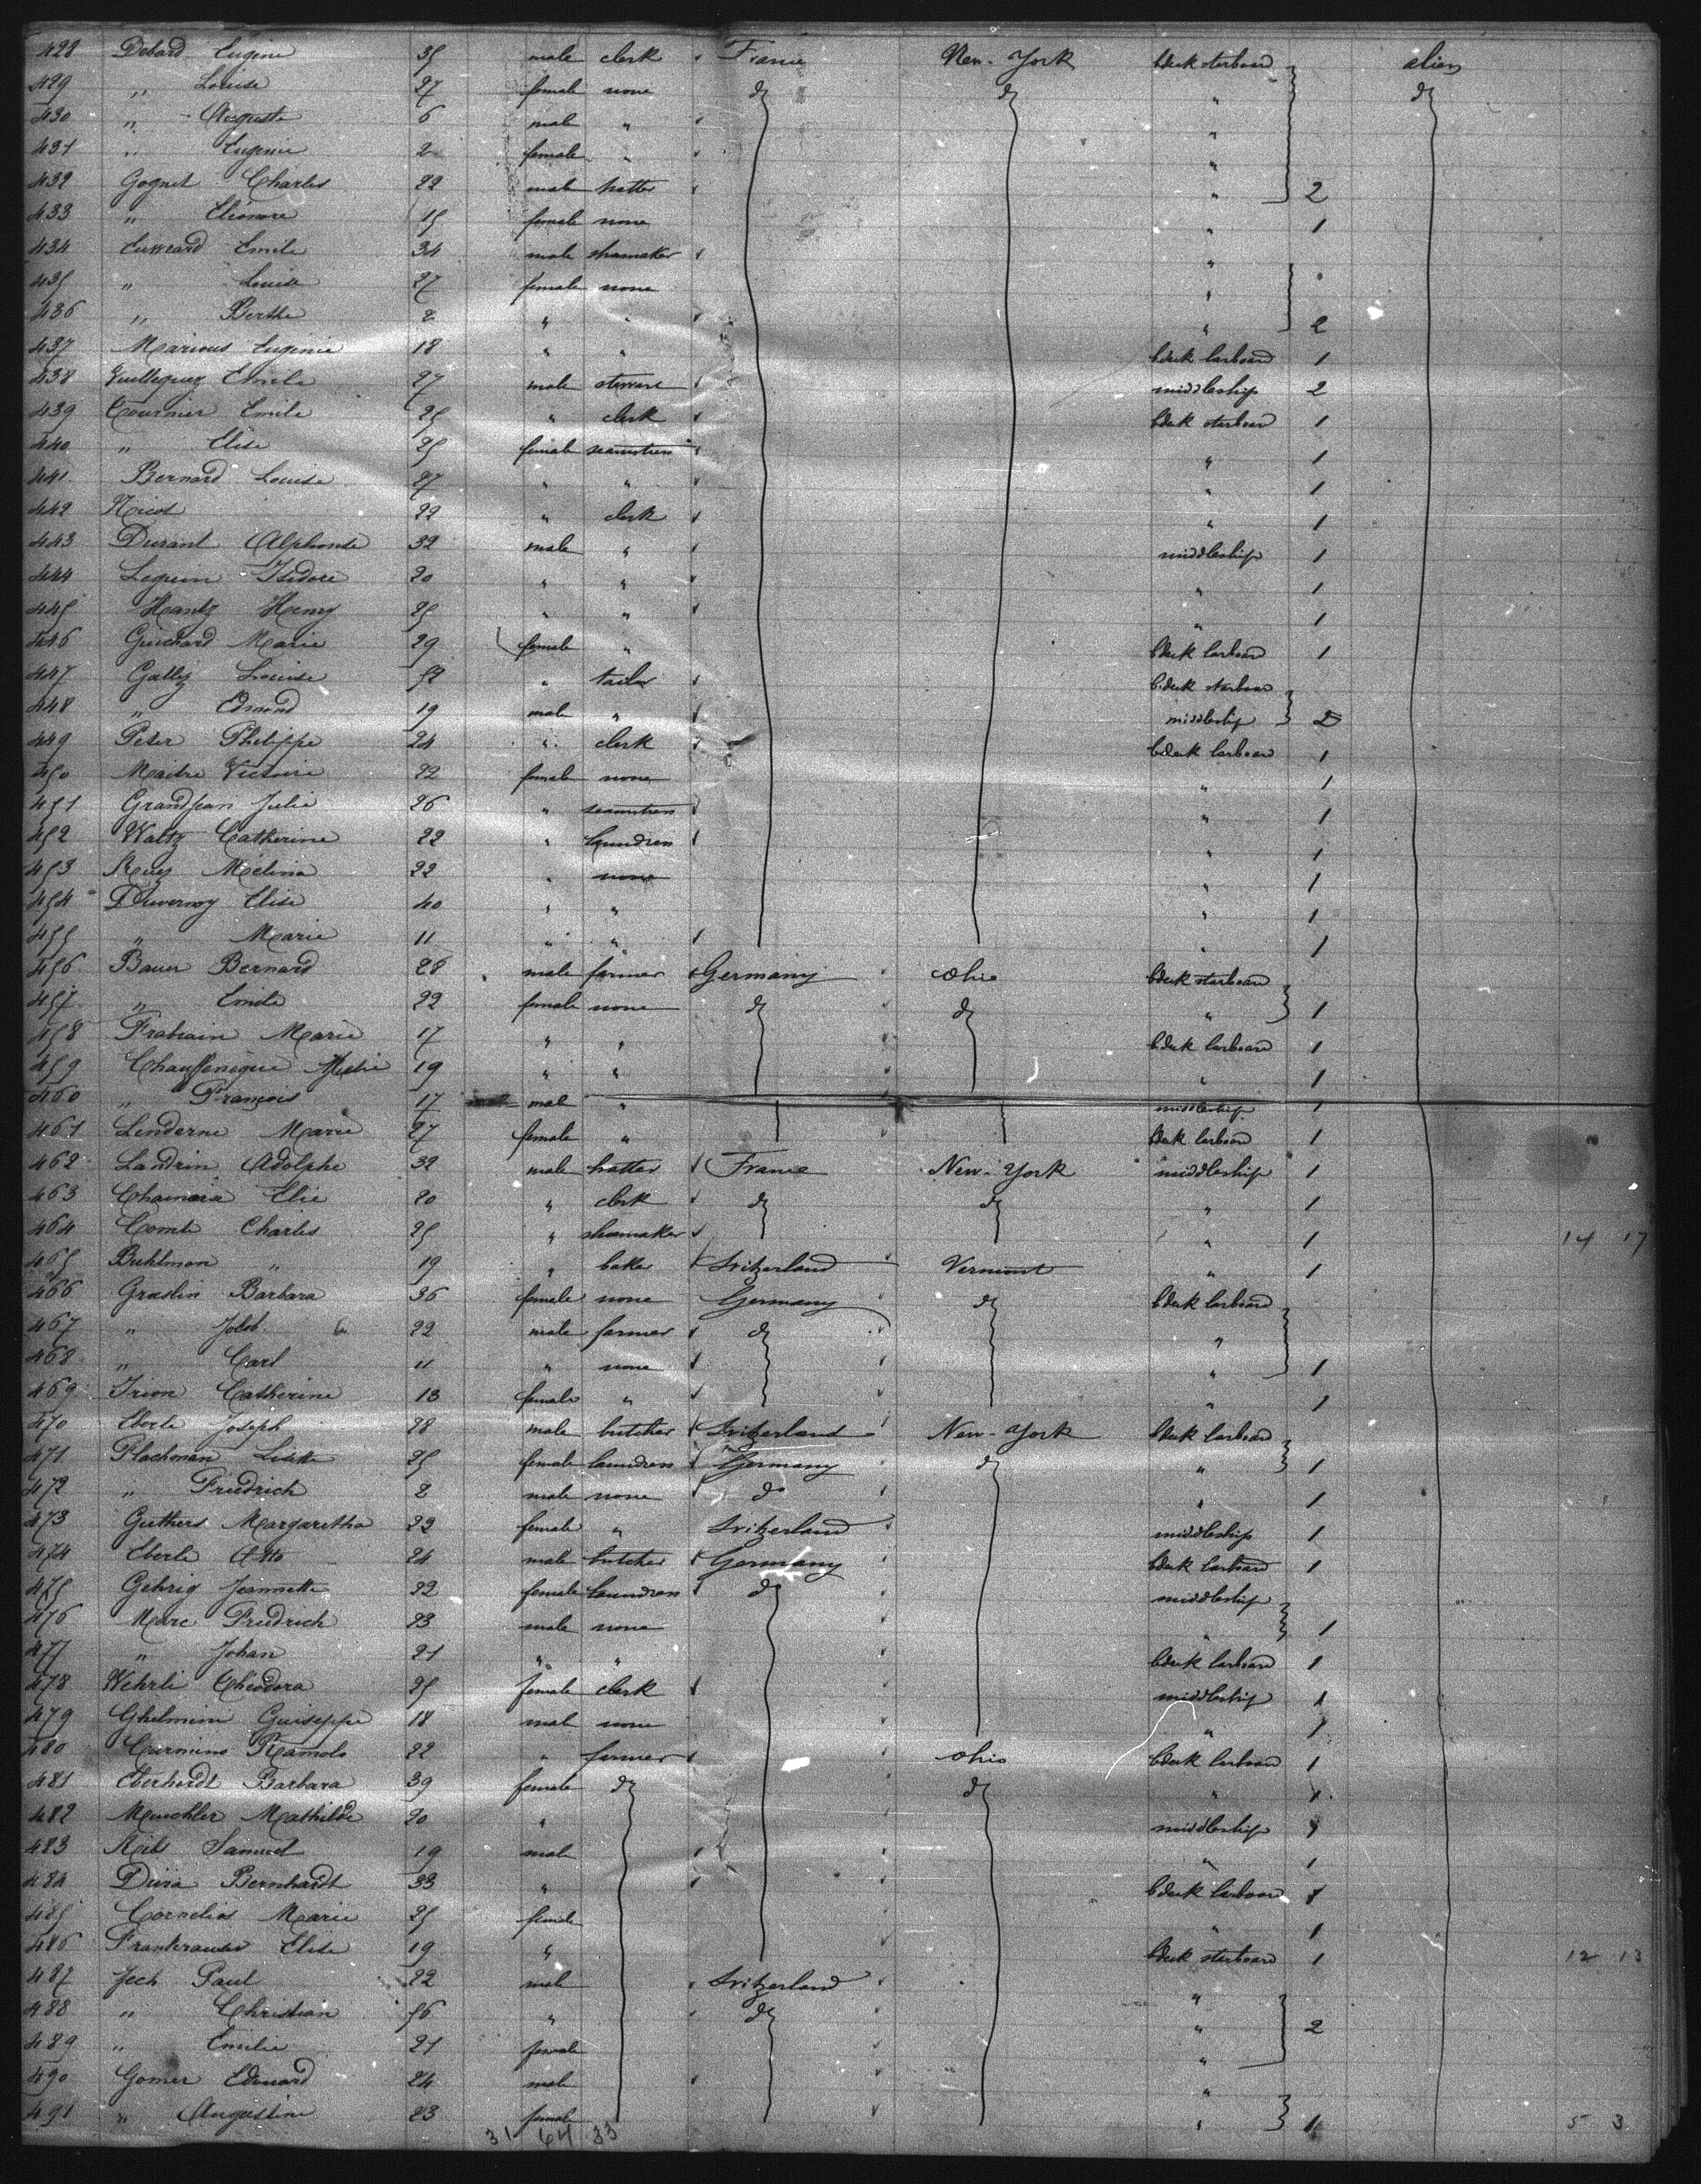 428 Debard Eugène 35 male clerk France New-York bdeck starboard alien
429 " Louise 27 female none do do " do
430 " Auguste 6 male " "
431 " Eugenie 2 female " "
432 Gognet Charles 22 male hatter " 2
433 " Eléonore 15 female none " 1
434 Emile 34 male shoemaker "
435 " Louise 27 female none "
436 " Berthe 2 " " " 2
437 Marious Eugenie 18 " " bdeck larboard 1
438 Vuillequez Emile 27 male middleship 2
439 Tournier Emile 25 " clerk bdeck starboard 1
440 " Elise 25 female seamstress " 1
441 Bernard Louise 27 " " " 1
442 Nicot 22 " clerk " 1
443 Durant Alphonse 32 male " middleship 1
444 Lequin Isidore 20 " " " 1
445 Hantz Henry 25 " " " 1
446 Guichard Marie 29 female " bdeck larboard 1
447 Gatty Louise 52 " tailor b.deck starboard
448 " Edmond 19 male " middleship 2
449 Peter Philippe 24 " clerk bdeck larboard 1
450 Maitre Victoire 22 female none " 1
451 Grandjean Julie 26 " seamstress " 1
452 Waltz Catherine 22 " laundress " 1
453 Mélina 22 " none " 1
454 Duvernoy Elise 40 " " " 1
455 " Marie 11 " " " 1
456 Bauer Bernard 28 male farmer Germany Ohio bdeck starboard
457 " Emile 22 female none do do " 1
458 Frabrain Marie 17 " " bdeck larboard 1
459 19 " " " 1
460 " François 17 male " middleship 1
461 Linderne Marie 27 female " bdeck larboard 1
462 Landrin Adolphe 32 male hatter France New-York middleship 1
463 Elie 20 " clerk do do " 1
464 Comte Charles 25 " shoemaker " 1 14 17
465 Buhlman " 19 " baker Switzerland Vermont " 1
466 Graslin Barbara 36 female none Germany do bdeck larboard
467 " Jakob 22 male farmer do "
468 " Carl 11 " none " 1
469 Irion Catherine 13 female " " 1
470 Eberle Joseph 28 male butcher Switzerland New-York bdeck larboard
471 Plachman Lisette 25 female laundress Germany do " 1
472 " Friedrich 2 male none do " 1
473 Guthers Margaretha 22 female " Switzerland middleship 1
474 Eberle Otto 24 male butcher Germany bdeck larboard 1
475 Gehrig Jeannette 22 female laundress do middleship
476 Marc Friedrich 23 male none " 1
477 " Johan 21 " " bdeck larboard 1
478 Wehrli Theodora 25 female clerk middleship 1
479 Ghelmini Guiseppe 18 male none " 1
480 Carmino Ramolo 22 " farmer Ohio bdeck larboard 1
481 Eberhardt Barbara 39 female do do " 1
482 Menchler Mathilde 20 " middleship 1
483 Samuel 19 male " 1
484 Bernhardt 33 " bdeck larboard 1
485 Cornelias Marie 25 female " 1
486 Frankrauser Elise 19 " bdeck starboard 1 12 13
487 Jech Paul 22 male Switzerland "
488 " Christian 56 " do " 2
489 " Emilie 21 female "
490 Gomer Edouard 24 male "
491 " Augustine 23 female " 1 5 3
31 64 33